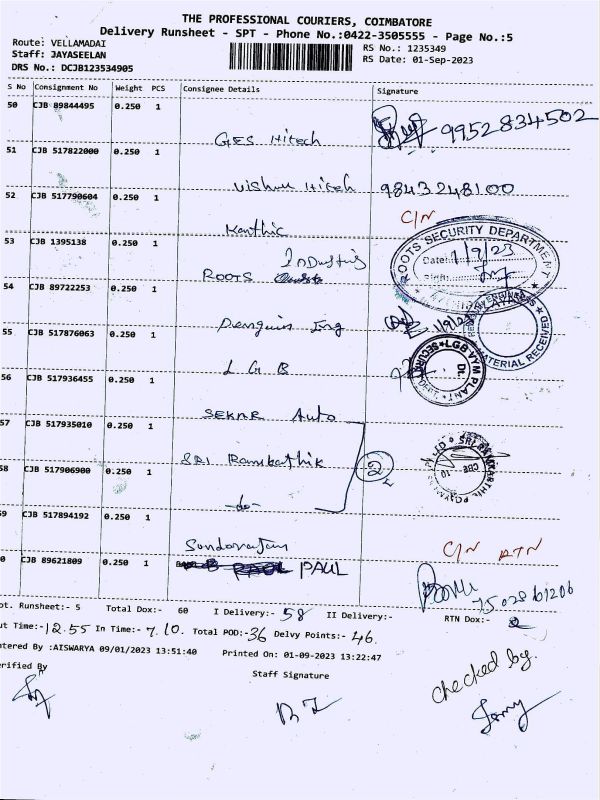 THE PROFESSIONAL COURIERS, COIMBATORE
Delivery Runsheet - SPT - Phone No.:0422-3505555 - Page No.:5
Route: VELLAMADAI
RS No.: 1235349
Staff: JAYASEELAN
RS Date: 01-Sep-2023
DRS No.: DCJB123534905
S No Consignment No Weight PCS Consignee Details Signature
50 CJB 89844495 0.250 1
GES Hitech 9952834502
51 CJB 517822000 0.250 1
Vishnu Hitech 9843248100
52 CJB 517790604 0.250 1
Karthic C/N
53 CJB 1395138 0.250 1
ROOTS Industries
ROOTS SECURITY DEPARTMENT
Date: 1/9/23
54 CJB 89722253 0.250 1
Penguin Eng 1/9/23
MATERIAL RECEIVED
55 CJB 517876063 0.250 1
L G B
LGB VYM PLANT
SECURITY
Dt.
56 CJB 517936455 0.250 1
SEKAR Auto
57 CJB 517935010 0.250 1
SRI Ramkathik 2
58 CJB 517906900 0.250 1
-do-
9 CJB 517894192 0.250 1
Sundorajan C/N RTN
0 CJB 89621809 0.250 1
PAUL
ot. Runsheet:- 5 Total Dox:- 60 I Delivery:- 58 II Delivery:- RTN Dox:- 2
ut Time:- 12.55 In Time:- 7.10. Total POD:- 36 Delvy Points:- 46.
ntered By :AISWARYA 09/01/2023 13:51:40 Printed On: 01-09-2023 13:22:47
erified By
Staff Signature
checked by.